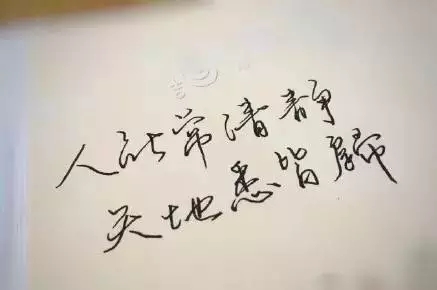 人能常清靜
天地悉皆歸